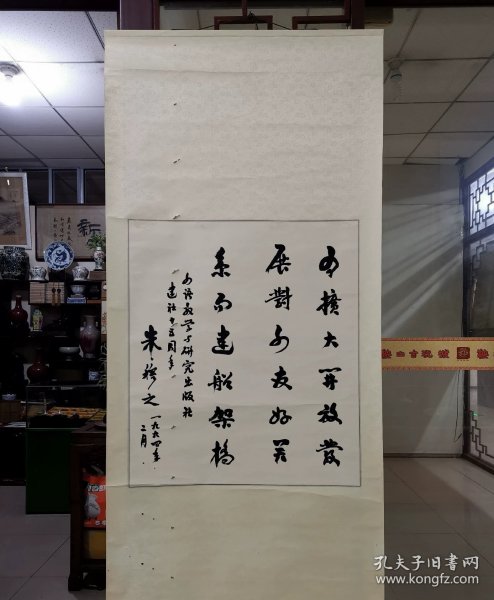 为擴大开放發
展對外友好关
系而造船架橋
外语教学与研究出版社
建社十五周年
朱穆之 一九九四年
二月
新
孔夫子旧书网
www.kongfz.com